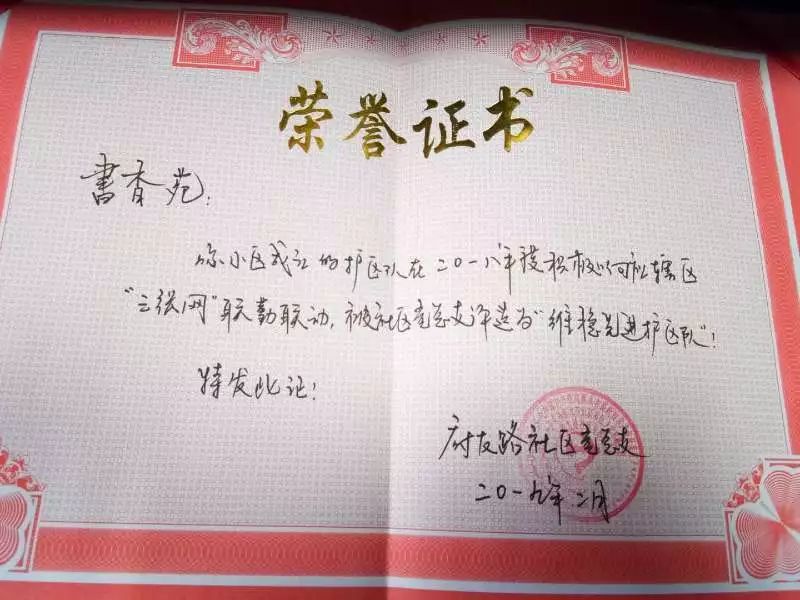 荣誉证书
书香苑:
你小区成立的护区队在二〇一八年度积极参加辖区
"三张网"联勤联动,被社区党总支评选为"维稳先进护区队"!
特发此证!
府友路社区党总支
二〇一九年二月